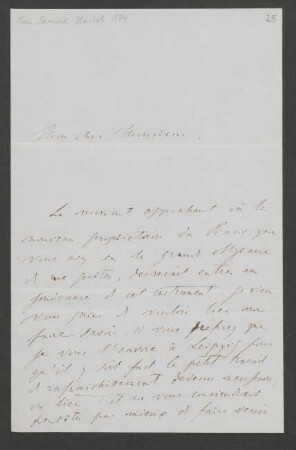 25
Mon cher Monsieur,
Le moment approchant où le
nouveau propriétaire du Piano que
vous avez eu la grande obligeance
de me prêter, désirerait entrer en
jouissance de cet instrument je viens
vous prier de vouloir bien me
faire savoir, si vous préférez que
je vous l'envoie à Leipzig pour
qu'il y soit fait le petit travail
de rafraîchissement devenu nécessaire,
ou bien s'il ne vous conviendrait
peut-être pas mieux de faire venir